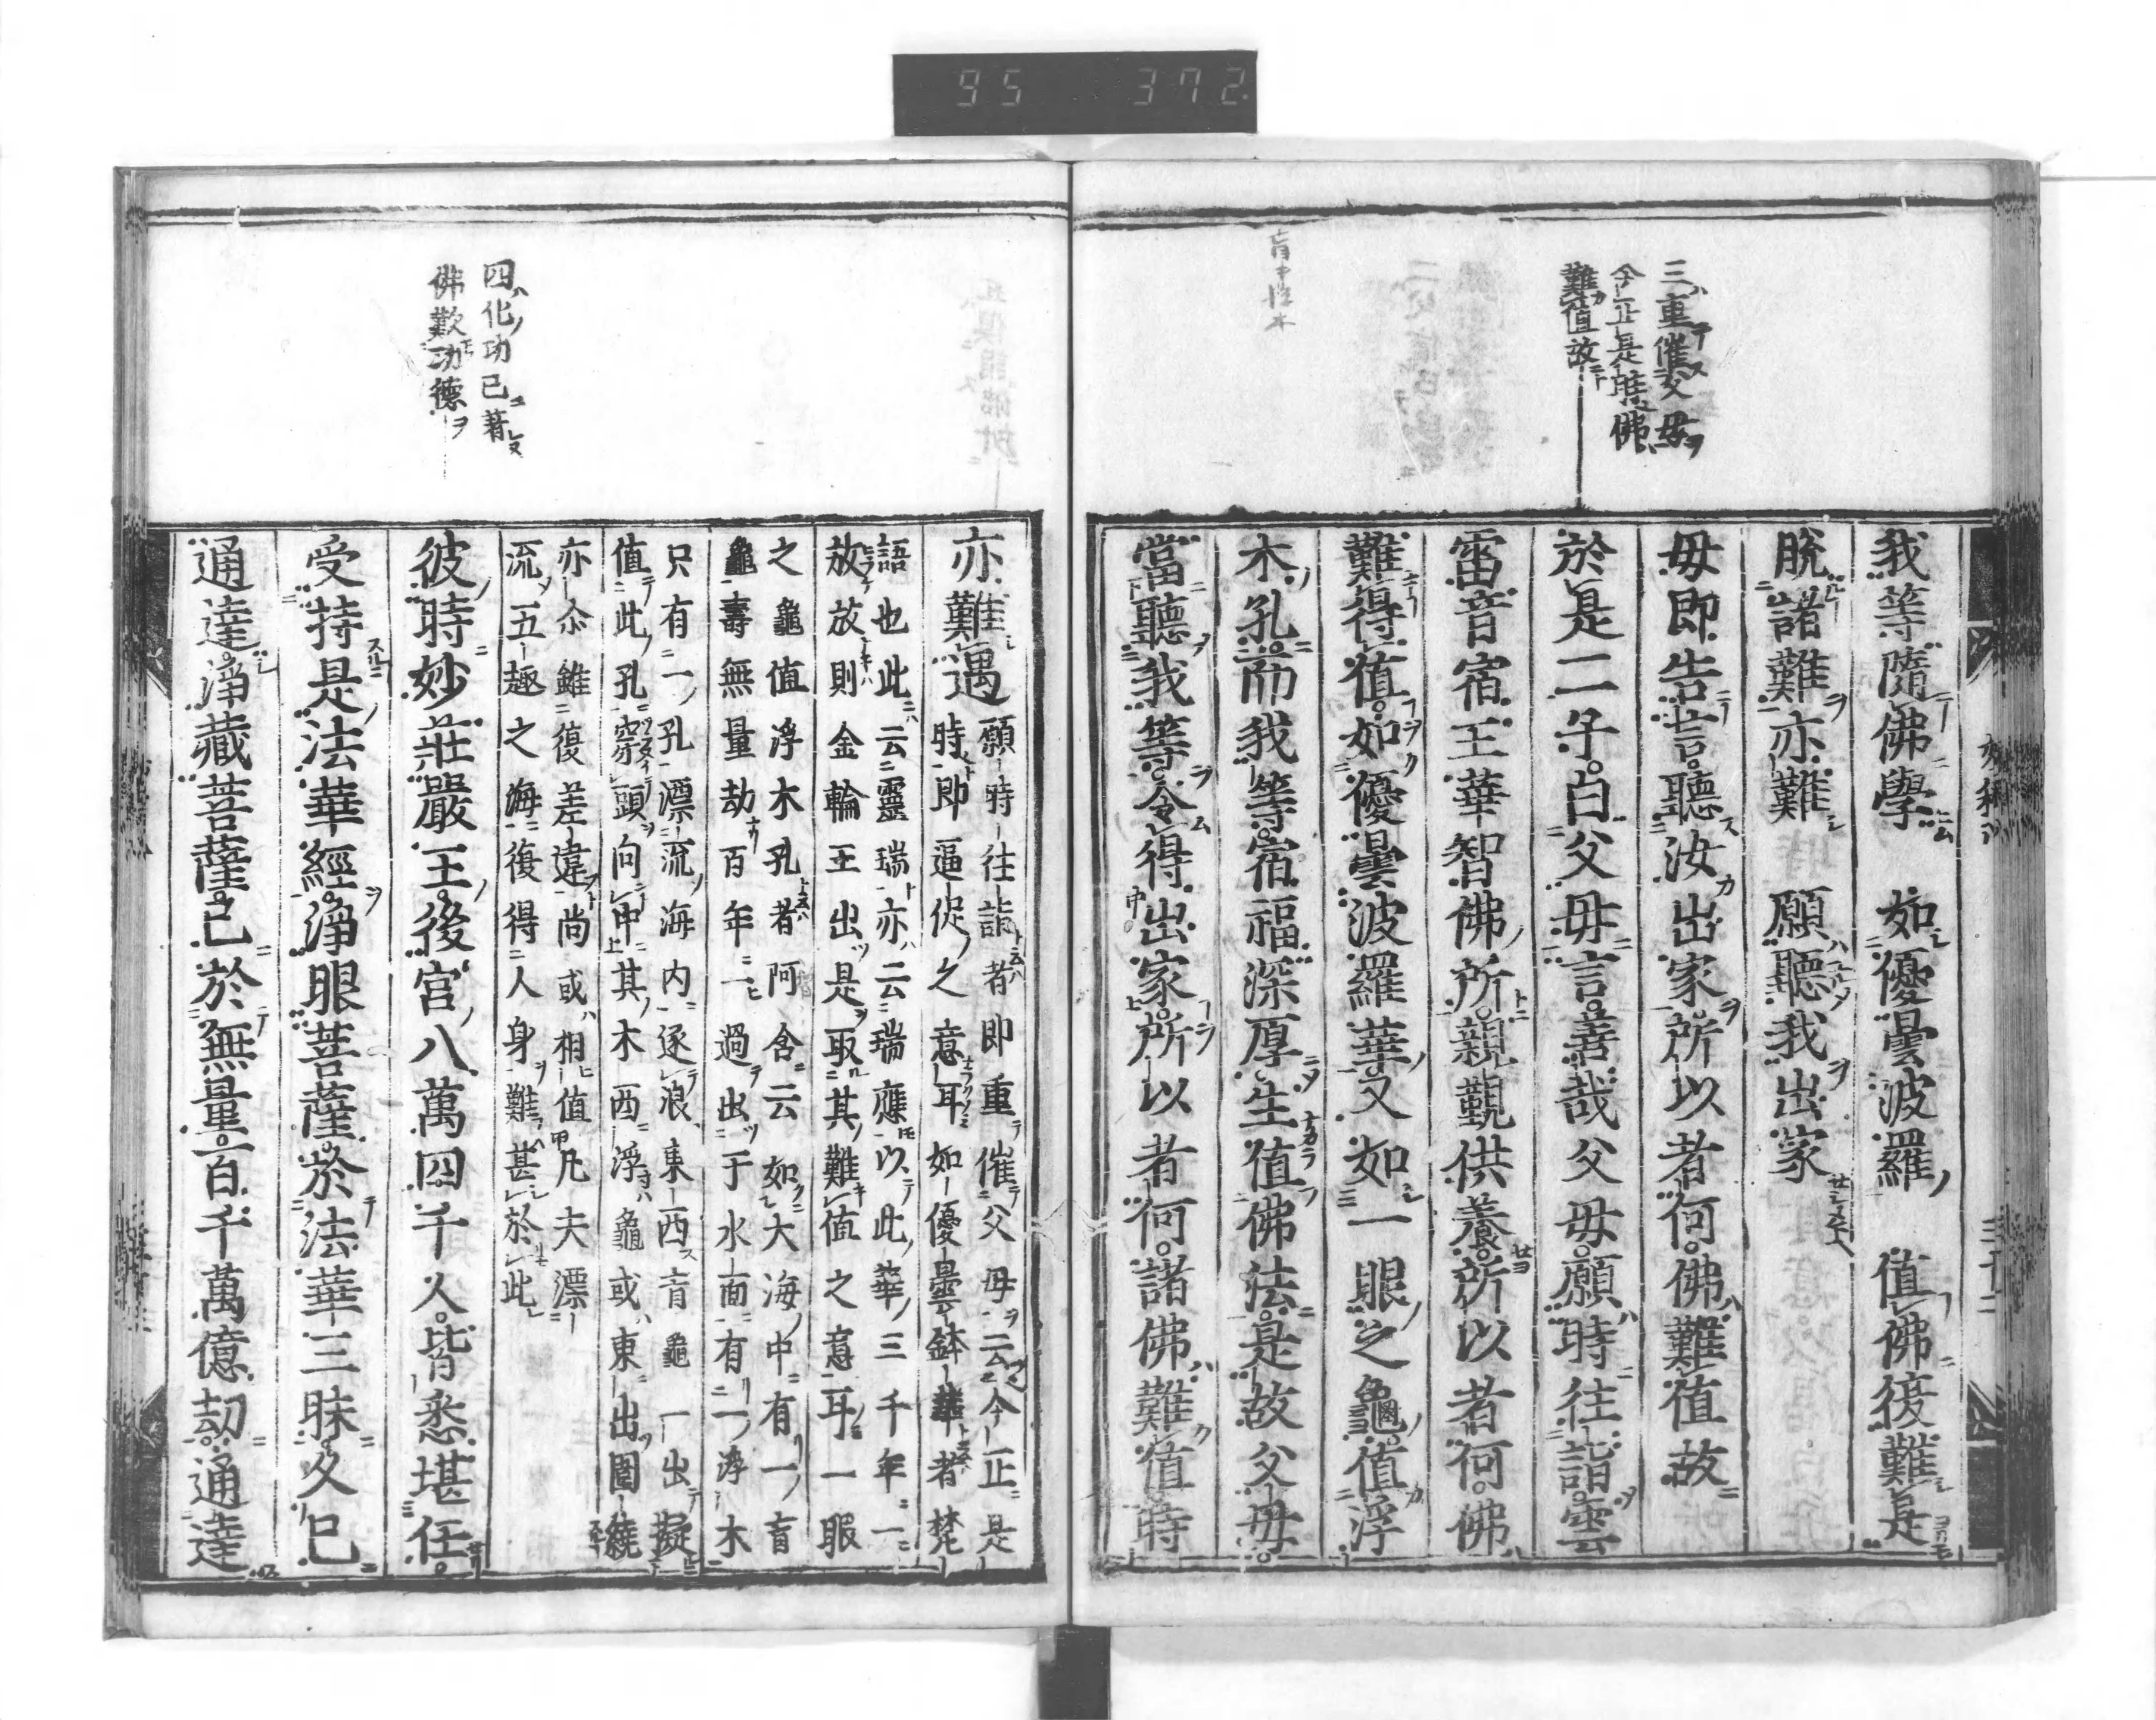 95 372
三重催父母
今正是時佛
難值故
我等隨佛學 如優曇波羅 值佛復難是
脫諸難亦難 願聽我出家
母即告言聽汝出家所以者何佛難值故
於是二子白父母言善哉父母願時往詣雲
雷音宿王華智佛所親覲供養所以者何佛
難得值如優曇波羅華又如一眼之龜值浮
木孔而我等宿福深厚生值佛法是故父母
當聽我等令得出家所以者何諸佛難值時
四化功已著
佛歎功德
亦難遇
願時往詣者即重催父母云今正是
時即逼促之意耳如優曇鉢華者梵
語也此云靈瑞亦云瑞應以此華三千年一
放放則金輪王出是取其難值之意耳一眼
之龜值浮木孔者阿含云如大海中有一盲
龜壽無量劫百年一過出于水面有一浮木
只有一孔漂流海內逐浪東西盲龜一出擬
值此孔穿頭向中其木西浮龜或東出圍繞
亦尒雖復差違尚或相值凡夫漂
流五趣之海復得人身難甚於此
彼時妙莊嚴王後宮八萬四千人皆悉堪任
受持是法華經淨眼菩薩於法華三昧久已
通達淨藏菩薩已於無量百千萬億劫通達